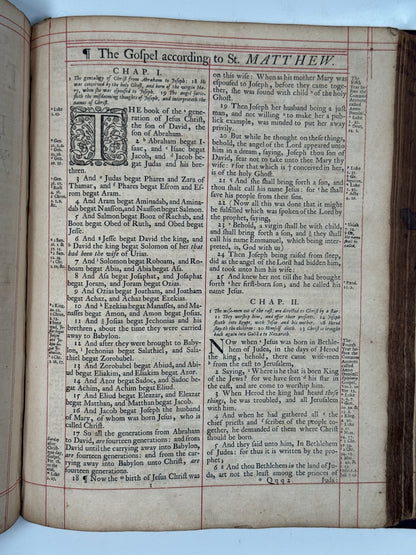 ¶ The Gospel according to St. MATTHEW.
CHAP. I.
1 The genealogy of Christ from Abraham to Joseph: 18 He
was conceived by the holy Ghost, and born of the virgin Ma-
ry, when she was espoused to Joseph. 19 The angel
names of Christ.
THE book of the gene-
ration of Jesus Christ,
the son of David, the
son of Abraham.
2 Abraham begat I-
saac, and Isaac begat
Jacob, and Jacob be-
gat Judas and his bre-
thren.
3 And Judas begat Phares and Zara of
Thamar, and Phares begat Esrom and Es-
rom begat Aram.
4 And Aram begat Amindab, and Amin-
dab begat Naasson, and Naasson begat Salmon.
5 And Salmon begat Booz of Rachab, and
Booz begat Obed of Ruth, and Obed begat
Jesse.
6 And Jesse begat David the king, and
David the king begat Solomon of her that
had been the wife of Urias.
7 And Solomon begat Roboam, and Ro-
boam begat Abia, and Abia begat Asa.
8 And Asa begat Josaphat, and Josaphat
begat Joram, and Joram begat Ozias.
9 And Ozias begat Joatham, and Joatham
begat Achaz, and Achaz begat Ezekias.
10 And Ezekias begat Manasses, and Ma-
nasses begat Amon, and Amon begat Josias.
11 And Josias begat Jechonias and his
brethren, about the time they were carried
away to Babylon.
12 And after they were brought to Baby-
lon, Jechonias begat Salathiel, and Sala-
thiel begat Zorobabel.
13 And Zorobabel begat Abiud, and Abi-
ud begat Eliakim, and Eliakim begat Azor.
14 And Azor begat Sadoc, and Sadoc be-
gat Achim, and Achim begat Eliud.
15 And Eliud begat Eleazar, and Eleazar
begat Matthan, and Matthan begat Jacob.
16 And Jacob begat Joseph the husband
of Mary, of whom was born Jesus, who is
called Christ.
17 So all the generations from Abraham
to David, are fourteen generations: and from
David until the carrying away into Babylon,
are fourteen generations: and from the car-
rying away into Babylon unto Christ, are
fourteen generations.
18 ¶ Now the birth of Jesus Christ was
on this wise: When as his mother Mary was
espoused to Joseph, before they came toge-
ther, she was found with child of the holy
Ghost.
19 Then Joseph her husband being a just
man, and not willing to make her a pub-
lick example, was minded to put her away
privily.
20 But while he thought on these things,
behold, the angel of the Lord appeared unto
him in a dream, saying, Joseph thou son of
David, fear not to take unto thee Mary thy
wife: for that which is † conceived in her,
is of the holy Ghost.
21 And she shall bring forth a son, and
thou shalt call his name Jesus: for he shall
save his people from their sins.
22 (Now all this was done that it might
be fulfilled which was spoken of the Lord by
the prophet, saying,
23 Behold, a virgin shall be with child,
and shall bring forth a son, and they shall
call his name Emmanuel, which being inter-
preted, is, God with us)
24 Then Joseph being raised from sleep,
did as the angel of the Lord had bidden him,
and took unto him his wife:
25 And knew her not till she had brought
forth her first-born son, and he called his
name Jesus.
CHAP. II.
back again into Galilee to Nazareth.
NOW when Jesus was born in Bethle-
hem of Judea, in the days of Herod
the king, behold, there came wise-men
from the east to Jerusalem,
2 Saying, Where is he that is born King
of the Jews? for we have seen his star in
the east, and are come to worship him.
3 When Herod the king had heard these
things, he was troubled, and all Jerusalem
with him.
4 And when he had gathered all the
chief priests and scribes of the people to-
gether, he demanded of them where Christ
should be born.
5 And they said unto him, In Bethlehem
of Judea: for thus it is written by the pro-
phet;
6 And thou Bethlehem in the land of Ju-
da, art not the least among the princes of
Qqq2
Juda: